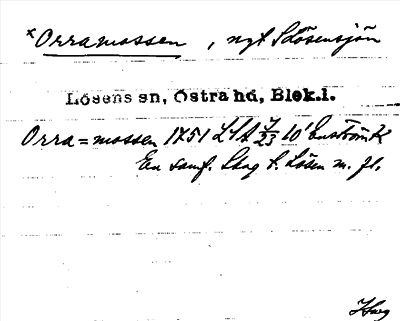 *Orramossen, nyt Lösensjön
Lösens sn, Östra hd, Blek.l.
Orra=mossen 1751 LSA 7/23 10' Enström
En samf. Slog t. Lösen m. fl.